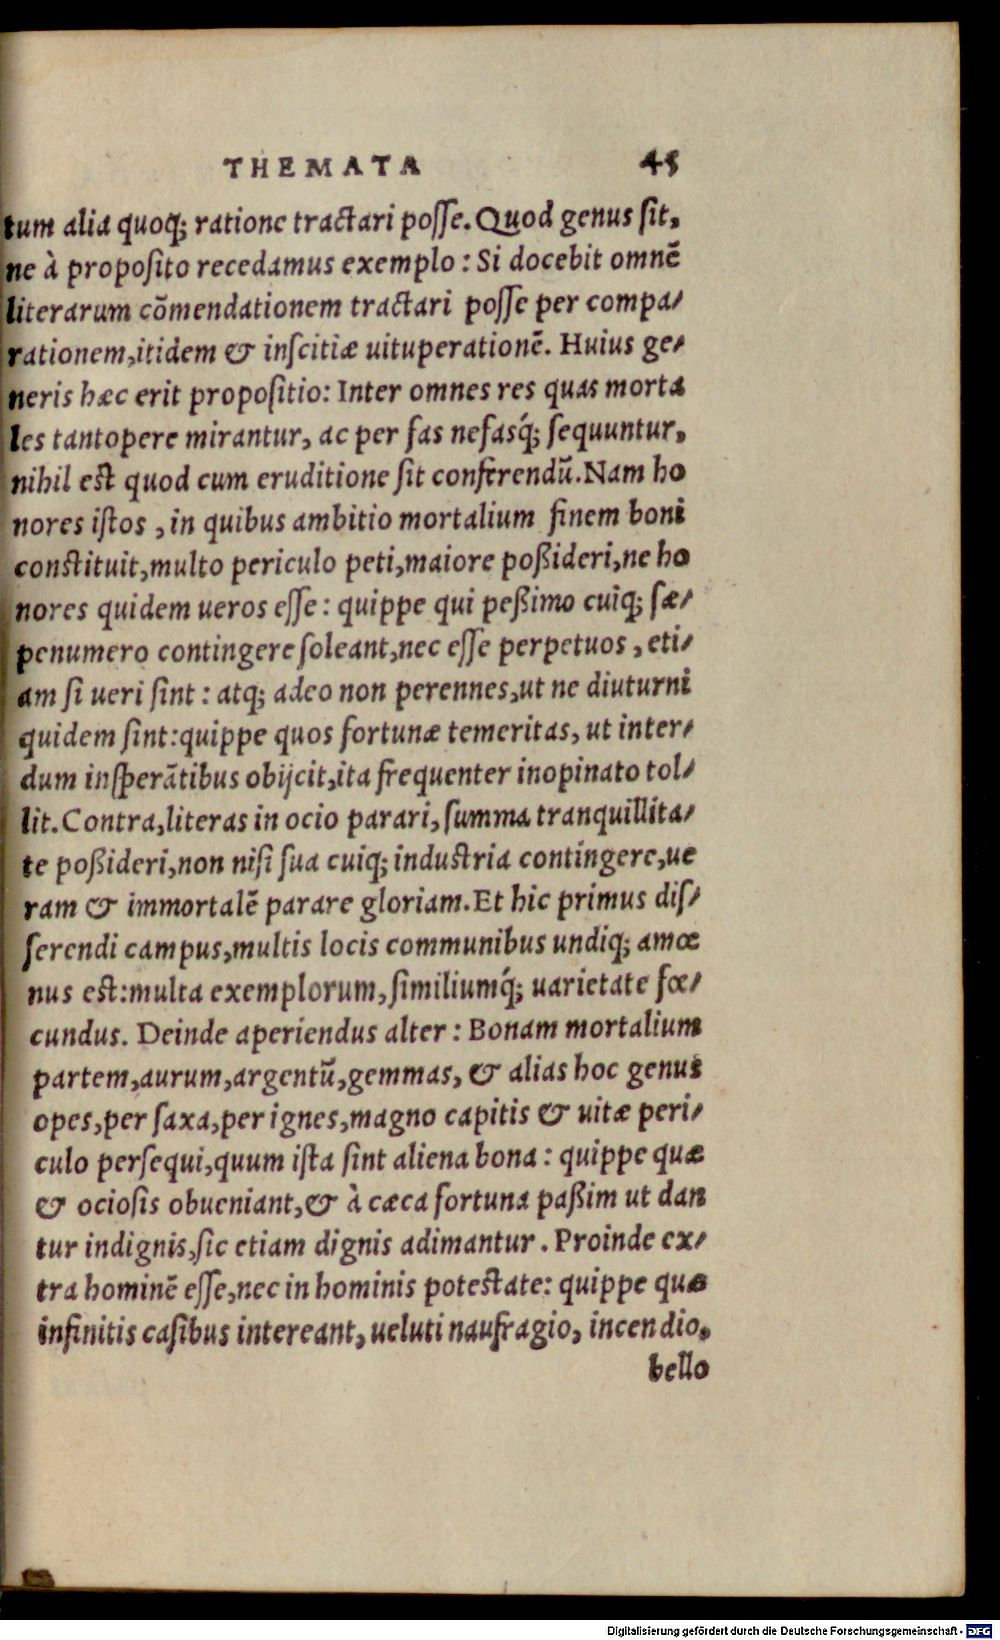 THEMATA 45
tum alia quoq; ratione tractari poſſe. Quod genus ſit,
ne à propoſito recedamus exemplo : Si docebit omnē
literarum cōmendationem tractari poſſe per compa/
rationem, itidem & inſcitiæ uituperationē. Huius ge/
neris hæc erit propoſitio: Inter omnes res quas morta
les tantopere mirantur, ac per fas nefasq́; ſequuntur,
nihil est quod cum eruditione ſit conferendū. Nam ho
nores iſtos , in quibus ambitio mortalium finem boni
constituit, multo periculo peti, maiore poßideri, ne ho
nores quidem ueros eſſe : quippe qui peßimo cuiq; ſæ/
penumero contingere ſoleant, nec eſſe perpetuos , eti/
am ſi ueri ſint : atq; adeo non perennes, ut ne diuturni
quidem ſint: quippe quos fortunæ temeritas, ut inter/
dum inſperātibus obijcit, ita frequenter inopinato tol/
lit. Contra, literas in ocio parari, ſumma tranquillita/
te poßideri, non niſi ſua cuiq; industria contingere, ue
ram & immortalē parare gloriam. Et hic primus diſ/
ſerendi campus, multis locis communibus undiq; amœ
nus est: multa exemplorum, ſimiliumq́; uarietate fœ/
cundus. Deinde aperiendus alter : Bonam mortalium
partem, aurum, argentū, gemmas, & alias hoc genus
opes, per ſaxa, per ignes, magno capitis & uitæ peri/
culo perſequi, quum iſta ſint aliena bona : quippe quæ
& ocioſis obueniant, & à cæca fortuna paßim ut dan
tur indignis, ſic etiam dignis adimantur . Proinde ex/
tra hominē eſſe, nec in hominis potestate: quippe quæ
infinitis caſibus intereant, ueluti naufragio, incendio,
bello
Digitalisierung gefördert durch die Deutsche Forschungsgemeinschaft - DFG